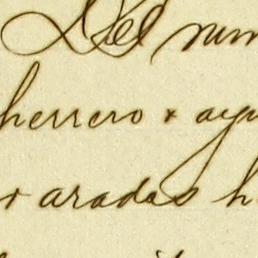 Del num
herrero & ayu
aradas h